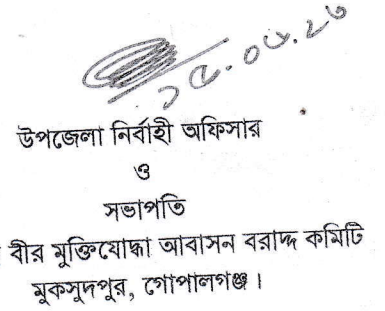 উপজেলা নির্বাহী অফিসার
ও
সভাপতি
বীর মুক্তিযোদ্ধা আবাসন বরাদ্দ কমিটি
মুকসুদপুর, গোপালগঞ্জ।